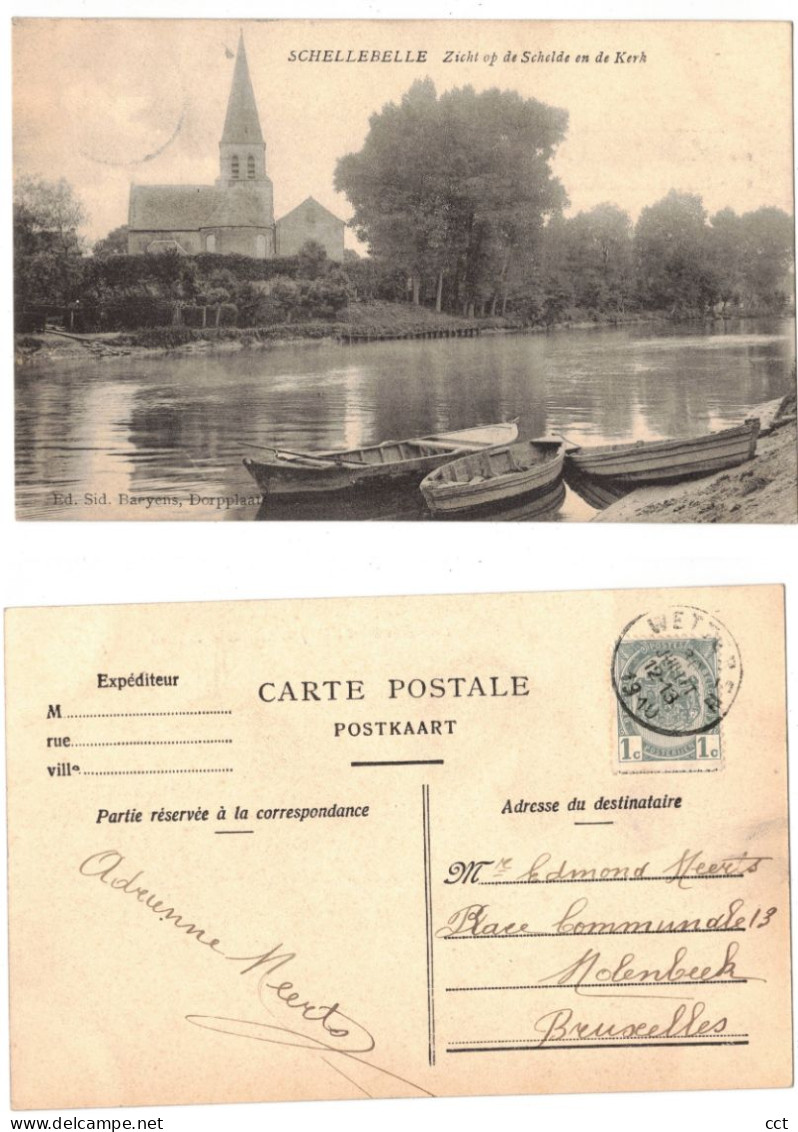 SCHELLEBELLE Zicht op de Schelde en de Kerk
Ed. Sid. Baeyens, Dorpplaat
Expéditeur
M
rue
ville
CARTE POSTALE
POSTKAART
WETTEREN
12-13
1910
1c 1c
Partie réservée à la correspondance
Adresse du destinataire
Adrienne Meerts
Mr Edmond Meerts
Place Communale 13
Molenbeek
Bruxelles
Delcampe.net
cct